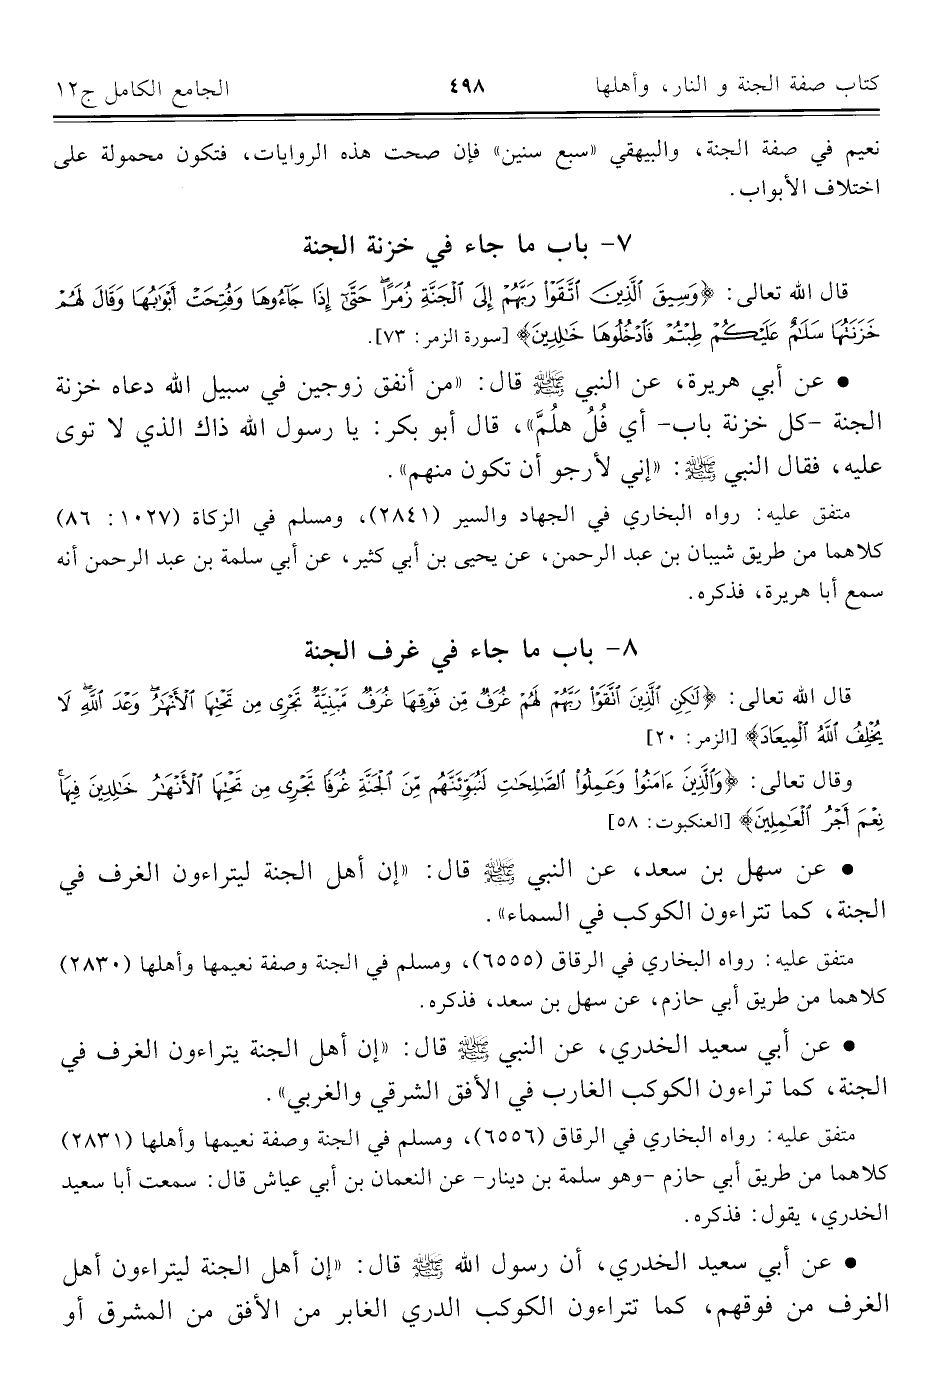 كتاب صفة الجنة و النار، وأهلها ٤٩٨ الجامع الكامل ج١٢
نعيم في صفة الجنة، والبيهقي «سبع سنين» فإن صحت هذه الروايات، فتكون محمولة على
اختلاف الأبواب.
٧- باب ما جاء في خزنة الجنة
قال الله تعالى: ﴿وَسِيقَ ٱلَّذِينَ ٱتَّقَوْا۟ رَبَّهُمْ إِلَى ٱلْجَنَّةِ زُمَرًا ۖ حَتَّىٰٓ إِذَا جَآءُوهَا وَفُتِحَتْ أَبْوَٰبُهَا وَقَالَ لَهُمْ
خَزَنَتُهَا سَلَٰمٌ عَلَيْكُمْ طِبْتُمْ فَٱدْخُلُوهَا خَٰلِدِينَ﴾ [سورة الزمر: ٧٣].
• عن أبي هريرة، عن النبي ﷺ قال: «من أنفق زوجين في سبيل الله دعاه خزنة
الجنة -كل خزنة باب- أي فُلُ هلُمَّ»، قال أبو بكر: يا رسول الله ذاك الذي لا توى
عليه، فقال النبي ﷺ: «إني لأرجو أن تكون منهم».
متفق عليه: رواه البخاري في الجهاد والسير (٢٨٤١)، ومسلم في الزكاة (١٠٢٧: ٨٦)
كلاهما من طريق شيبان بن عبد الرحمن، عن يحيى بن أبي كثير، عن أبي سلمة بن عبد الرحمن أنه
سمع أبا هريرة، فذكره.
٨- باب ما جاء في غرف الجنة
قال الله تعالى: ﴿لَٰكِنِ ٱلَّذِينَ ٱتَّقَوْا۟ رَبَّهُمْ لَهُمْ غُرَفٌ مِّن فَوْقِهَا غُرَفٌ مَّبْنِيَّةٌ تَجْرِى مِن تَحْتِهَا ٱلْأَنْهَٰرُ ۖ وَعْدَ ٱللَّهِ ۖ لَا
يُخْلِفُ ٱللَّهُ ٱلْمِيعَادَ﴾ [الزمر: ٢٠]
وقال تعالى: ﴿وَٱلَّذِينَ ءَامَنُوا۟ وَعَمِلُوا۟ ٱلصَّٰلِحَٰتِ لَنُبَوِّئَنَّهُم مِّنَ ٱلْجَنَّةِ غُرَفًا تَجْرِى مِن تَحْتِهَا ٱلْأَنْهَٰرُ خَٰلِدِينَ فِيهَا ۚ
نِعْمَ أَجْرُ ٱلْعَٰمِلِينَ﴾ [العنكبوت: ٥٨]
• عن سهل بن سعد، عن النبي ﷺ قال: «إن أهل الجنة ليتراءون الغرف في
الجنة، كما تتراءون الكوكب في السماء».
متفق عليه: رواه البخاري في الرقاق (٦٥٥٥)، ومسلم في الجنة وصفة نعيمها وأهلها (٢٨٣٠)
كلاهما من طريق أبي حازم، عن سهل بن سعد، فذكره.
• عن أبي سعيد الخدري، عن النبي ﷺ قال: «إن أهل الجنة يتراءون الغرف في
الجنة، كما تراءون الكوكب الغارب في الأفق الشرقي والغربي».
متفق عليه: رواه البخاري في الرقاق (٦٥٥٦)، ومسلم في الجنة وصفة نعيمها وأهلها (٢٨٣١)
كلاهما من طريق أبي حازم -وهو سلمة بن دينار- عن النعمان بن أبي عياش قال: سمعت أبا سعيد
الخدري، يقول: فذكره.
• عن أبي سعيد الخدري، أن رسول الله ﷺ قال: «إن أهل الجنة ليتراءون أهل
الغرف من فوقهم، كما تتراءون الكوكب الدري الغابر من الأفق من المشرق أو